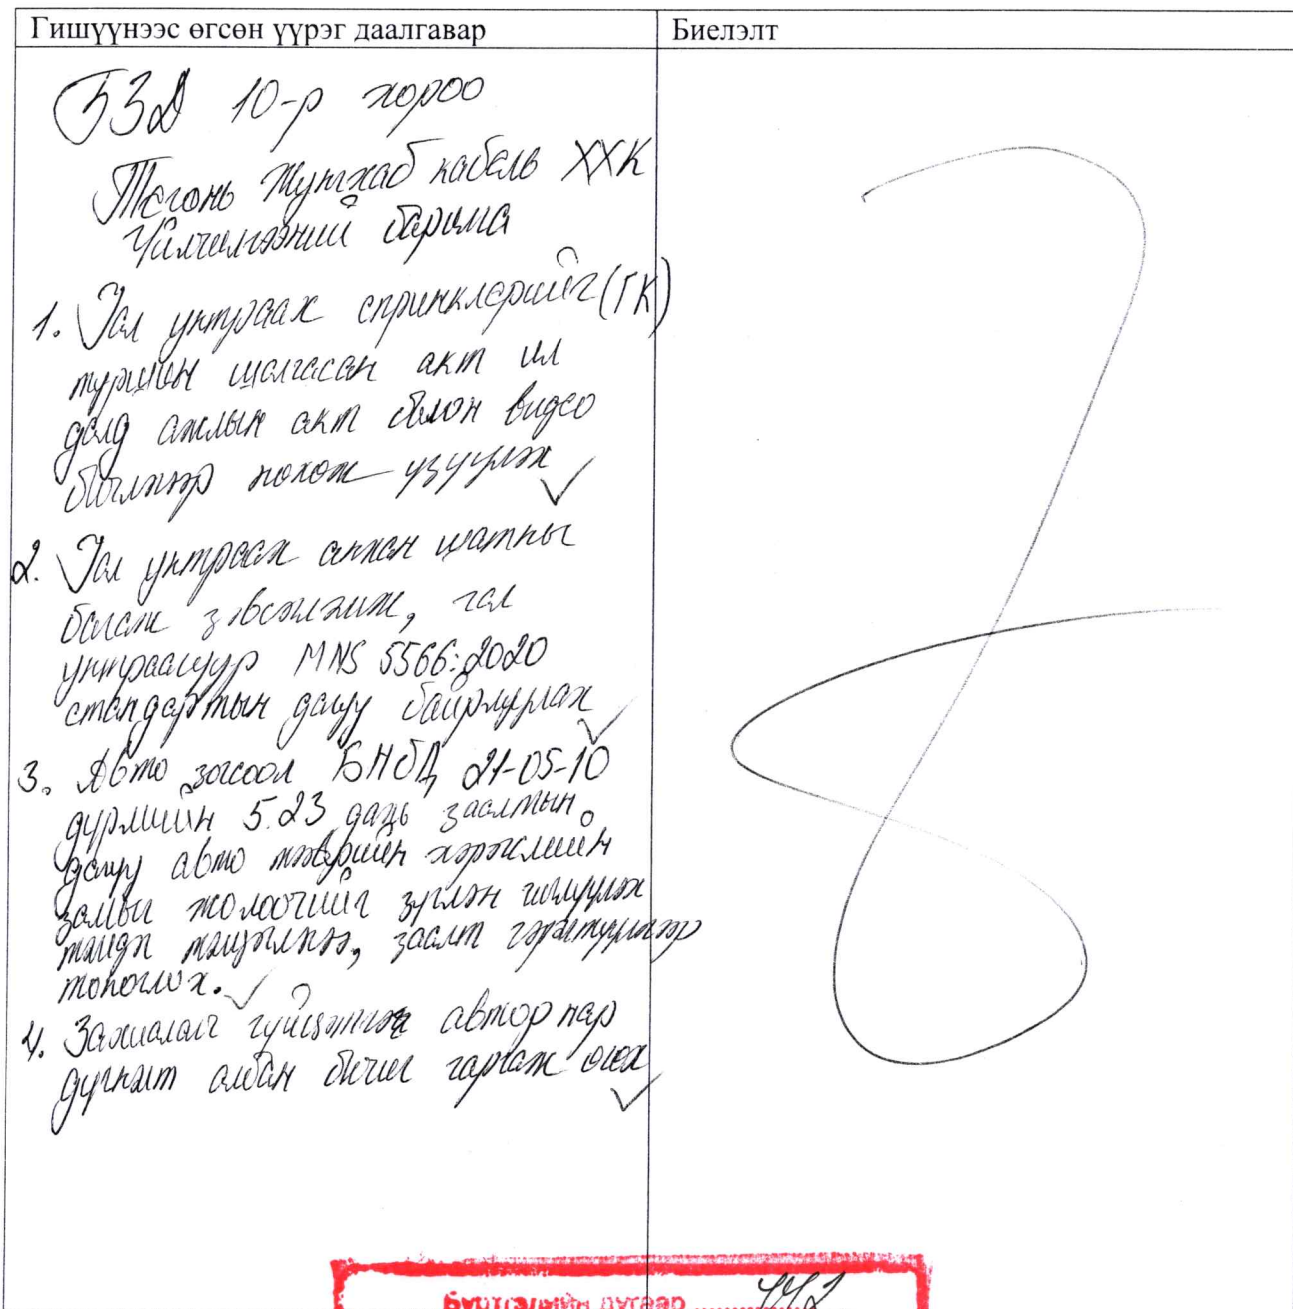 Гишүүнээс өгсөн үүрэг даалгавар
Биелэлт
БЗД 10-р хороо
кабель ХХК
Үйлчилгээний барилга
1. Гал унтраах спринклерийг (ГК)
туршин шалгасан акт ил
далд ажлын акт болон видео
бичлэгээр нөхөж үзүүлэх
2. Гал унтраах анхан шатны
багаж зэвсэглэмж, гал
унтраагуур MNS 5566:2020
стандартын дагуу байрлуулах
3. Авто зогсоол БНбД 21-05-10
дүрмийн 5.23 дахь заалтын
дагуу авто тээврийн хэрэгслийн
замыг жолоочийг зүглэн чиглүүлэх
тэмдэг тэмдэглэгээ, заалт гэрэлтүүлгээр
тоноглох.
4. Захиалагч гүйцэтгэгч автор нар
дүгнэлт албан бичиг гаргаж өгөх
Бүртгэлийн дугаар
442